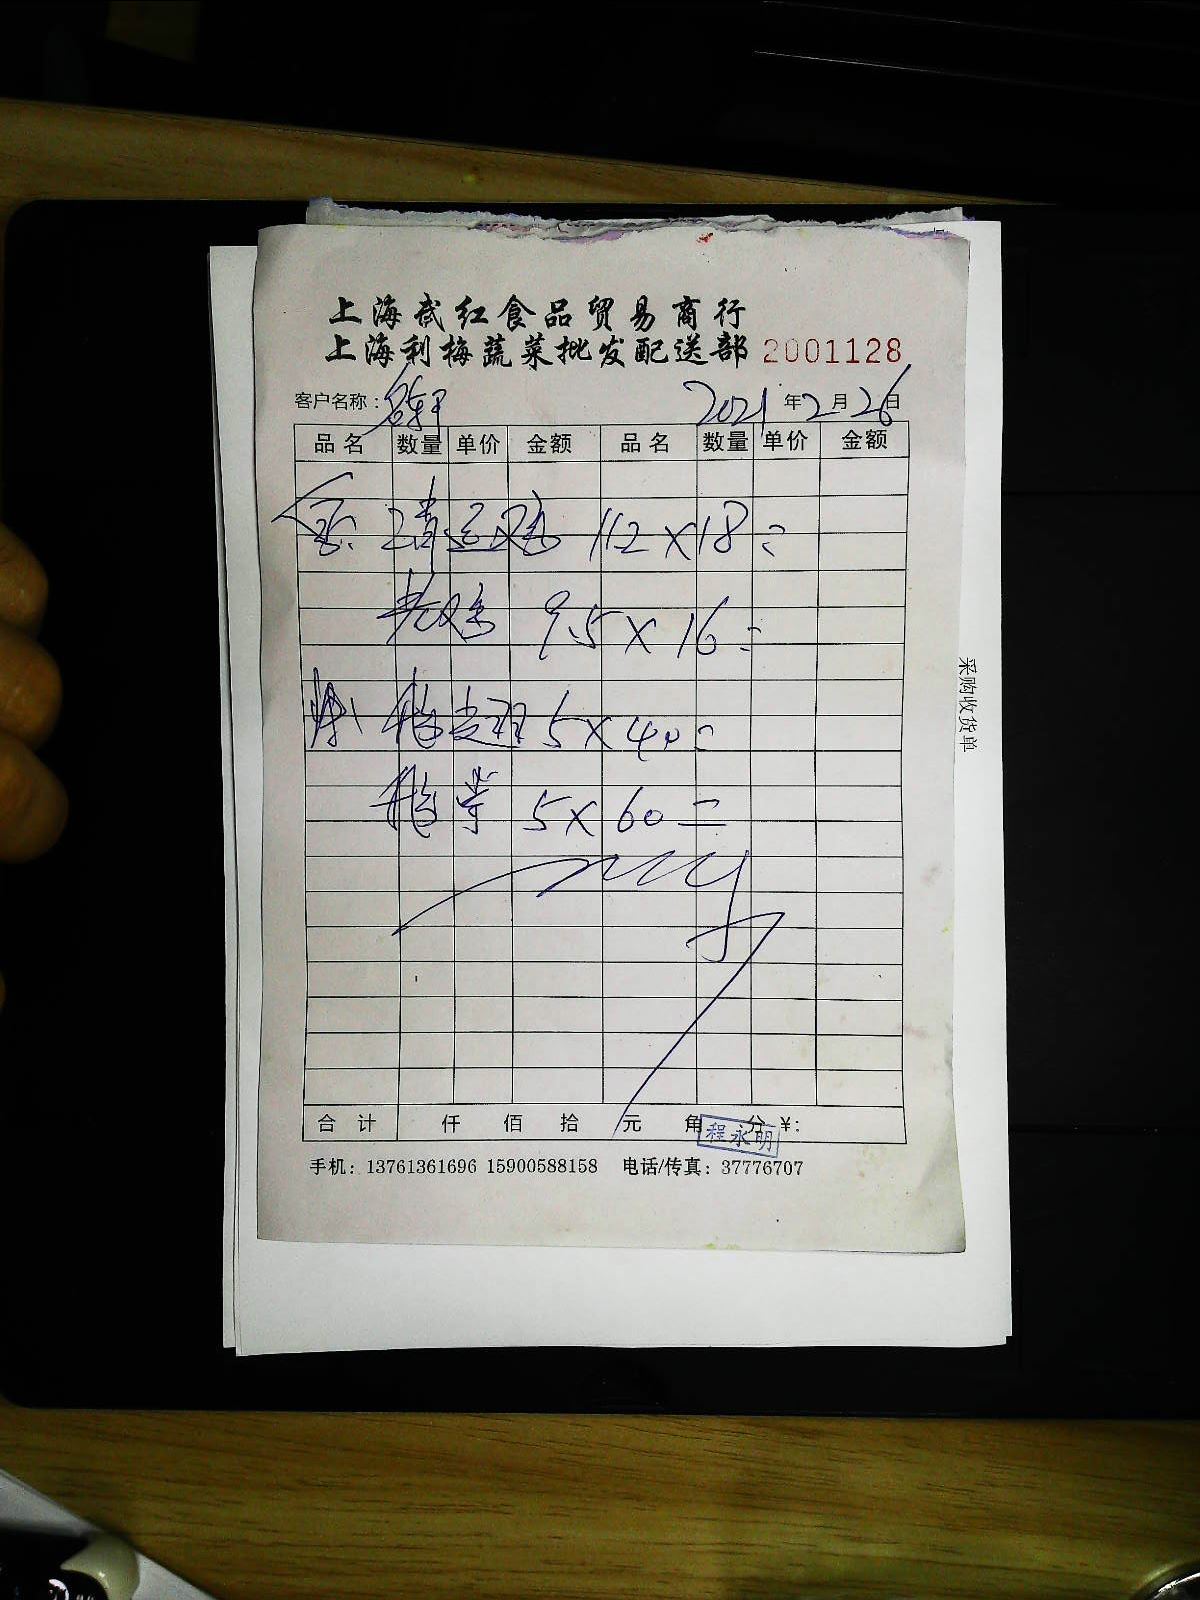 上海武红食品贸易商行
上海利梅蔬菜批发配送部 2001128
客户名称： 2021年2月26日
品名 数量 单价 金额 品名 数量 单价 金额
112×18=
老鸡 9.5×16=
5×40=
5×60=
合计 仟 佰 拾 元 角 分 ¥:
程永明
手机：13761361696 15900588158 电话/传真：37776707
采购收货单